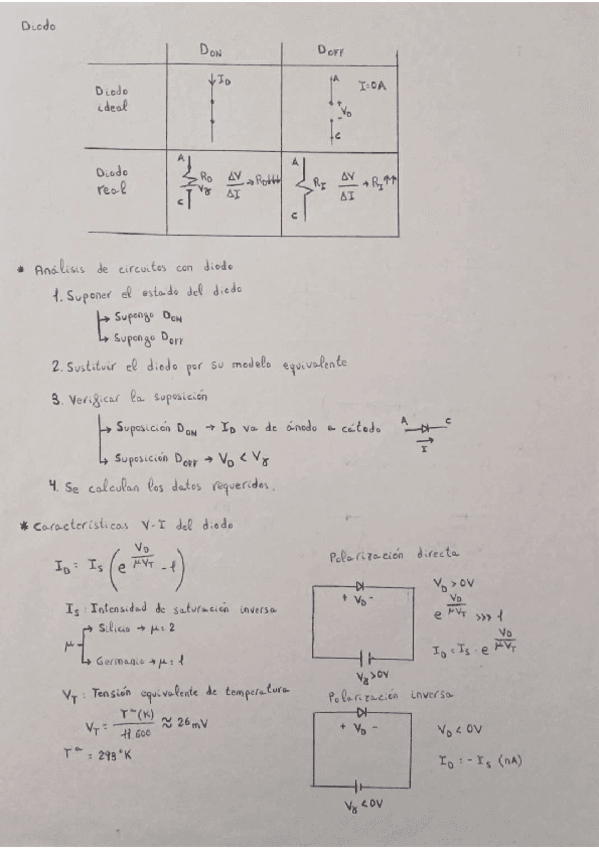 Diodo
D_ON D_OFF
Diodo ideal
I_D
A
+
V_D
-
C
I=0A
Diodo real
A
C
R_D
Vγ
ΔV/ΔI → R_D↓↓↓
A
C
R_I
ΔV/ΔI → R_I↑↑
* Análisis de circuitos con diodo
1. Suponer el estado del diodo
↳ Supongo D_ON
↳ Supongo D_OFF
2. Sustituir el diodo por su modelo equivalente
3. Verificar la suposición
↳ Suposición D_ON → I_D va de ánodo a cátodo
A C
I
↳ Suposición D_OFF → V_D < Vγ
4. Se calculan los datos requeridos.
* Características V-I del diodo
I_D = I_S (e^(V_D/μV_T) - 1)
I_S : Intensidad de saturación inversa
μ
→ Silicio → μ = 2
→ Germanio → μ = 1
V_T : Tensión equivalente de temperatura
V_T = Tª(K)/11.600 ≈ 26mV
Tª = 298°K
Polarización directa
+ V_D -
Vγ>0V
V_D > 0V
e^(V_D/μV_T) >>> 1
I_D = I_S · e^(V_D/μV_T)
Polarización inversa
+ V_D -
Vγ<0V
V_D < 0V
I_D = - I_S (nA)